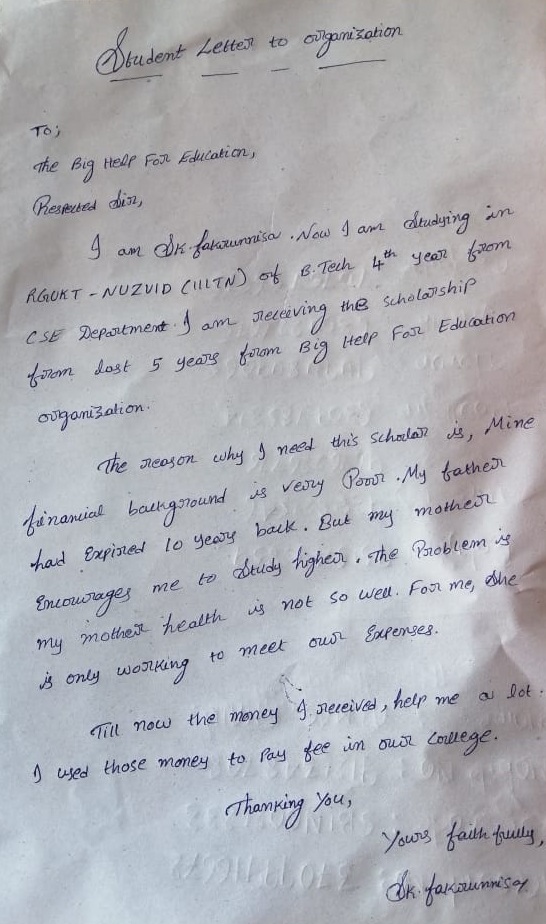 Student Letter to organization
To;
The Big Help For Education,
Respected Sir,
I am Sk.fakrunnisa. Now I am Studying in
RGUKT - NUZVID (IIITN) of B.Tech 4th year from
CSE Department. I am receiving the scholarship
from last 5 years from Big Help For Education
organization.
The reason why I need this scholar is, Mine
financial background is very Poor. My father
had Expired 10 years back. But my mother
Encourages me to Study higher. The Problem is
my mother health is not so well. For me, She
is only working to meet our Expenses.
Till now the money I received, help me a lot.
I used those money to Pay fee in our college.
Thanking You,
Yours faith fully,
Sk. fakrunnisa